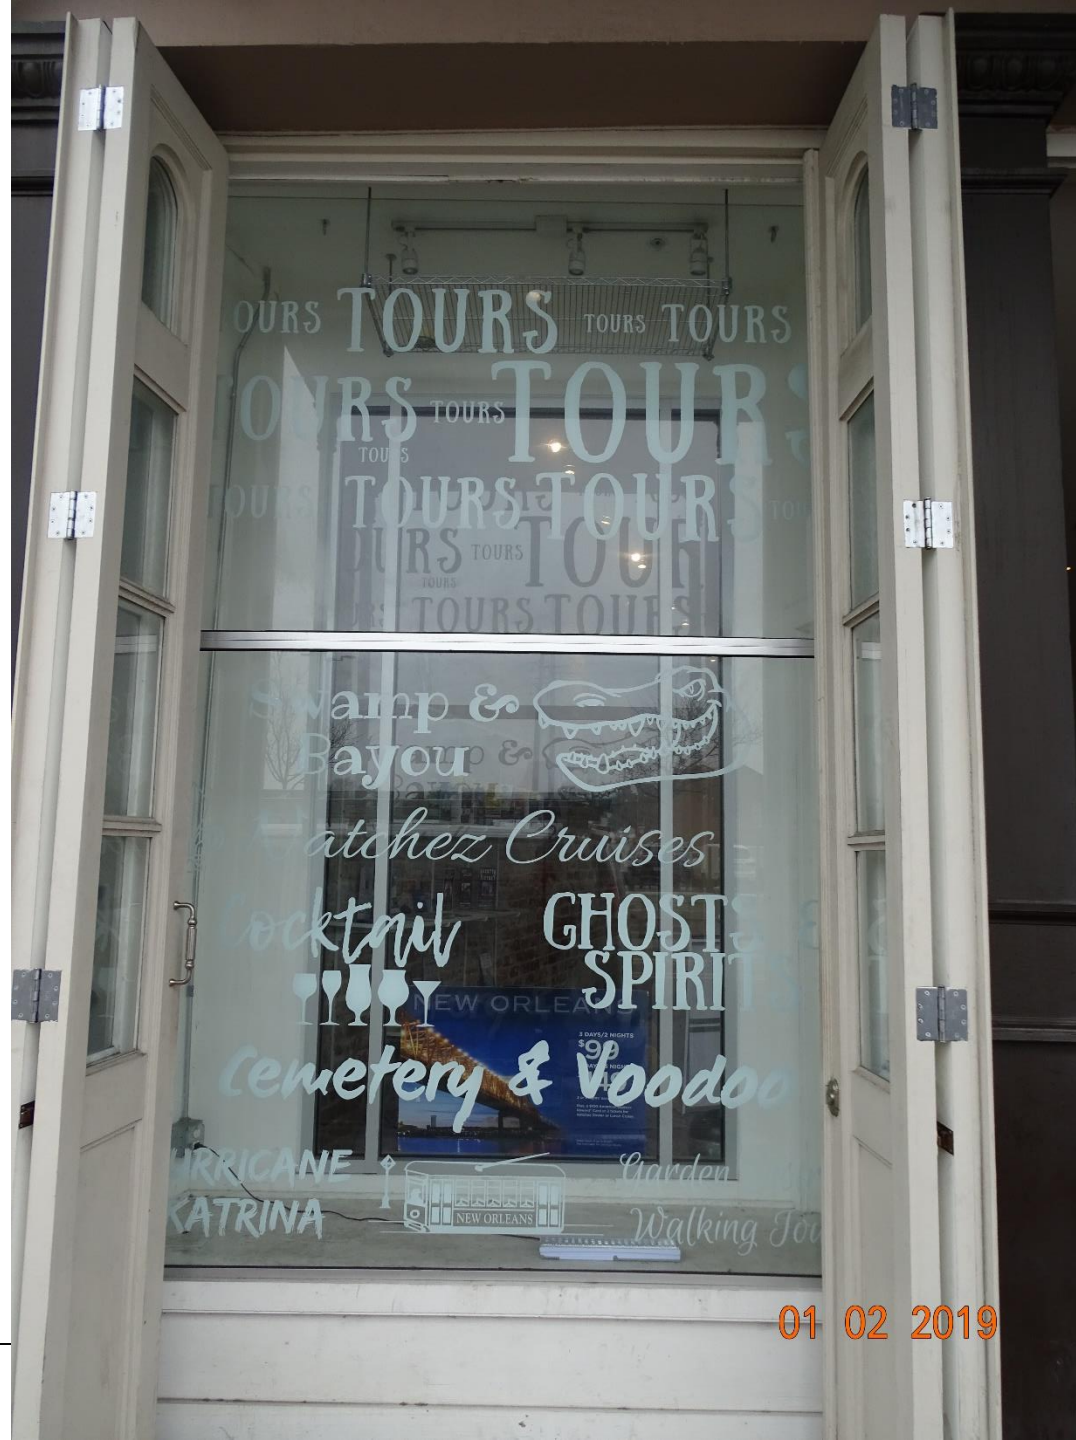 OURS TOURS TOURS TOURS
OURS TOURS TOURS
TOURS
TOURS TOURS TOURS
URS TOURS TOUR
TOURS
TOURS TOURS
Swamp &
Bayou
atchez Cruises
Cocktail
GHOSTS &
SPIRITS
NEW ORLEANS
3 DAYS/2 NIGHTS
$99
Cemetery & Voodoo
URRICANE
KATRINA
NEW ORLEANS
Garden
Walking Tou
01 02 2019